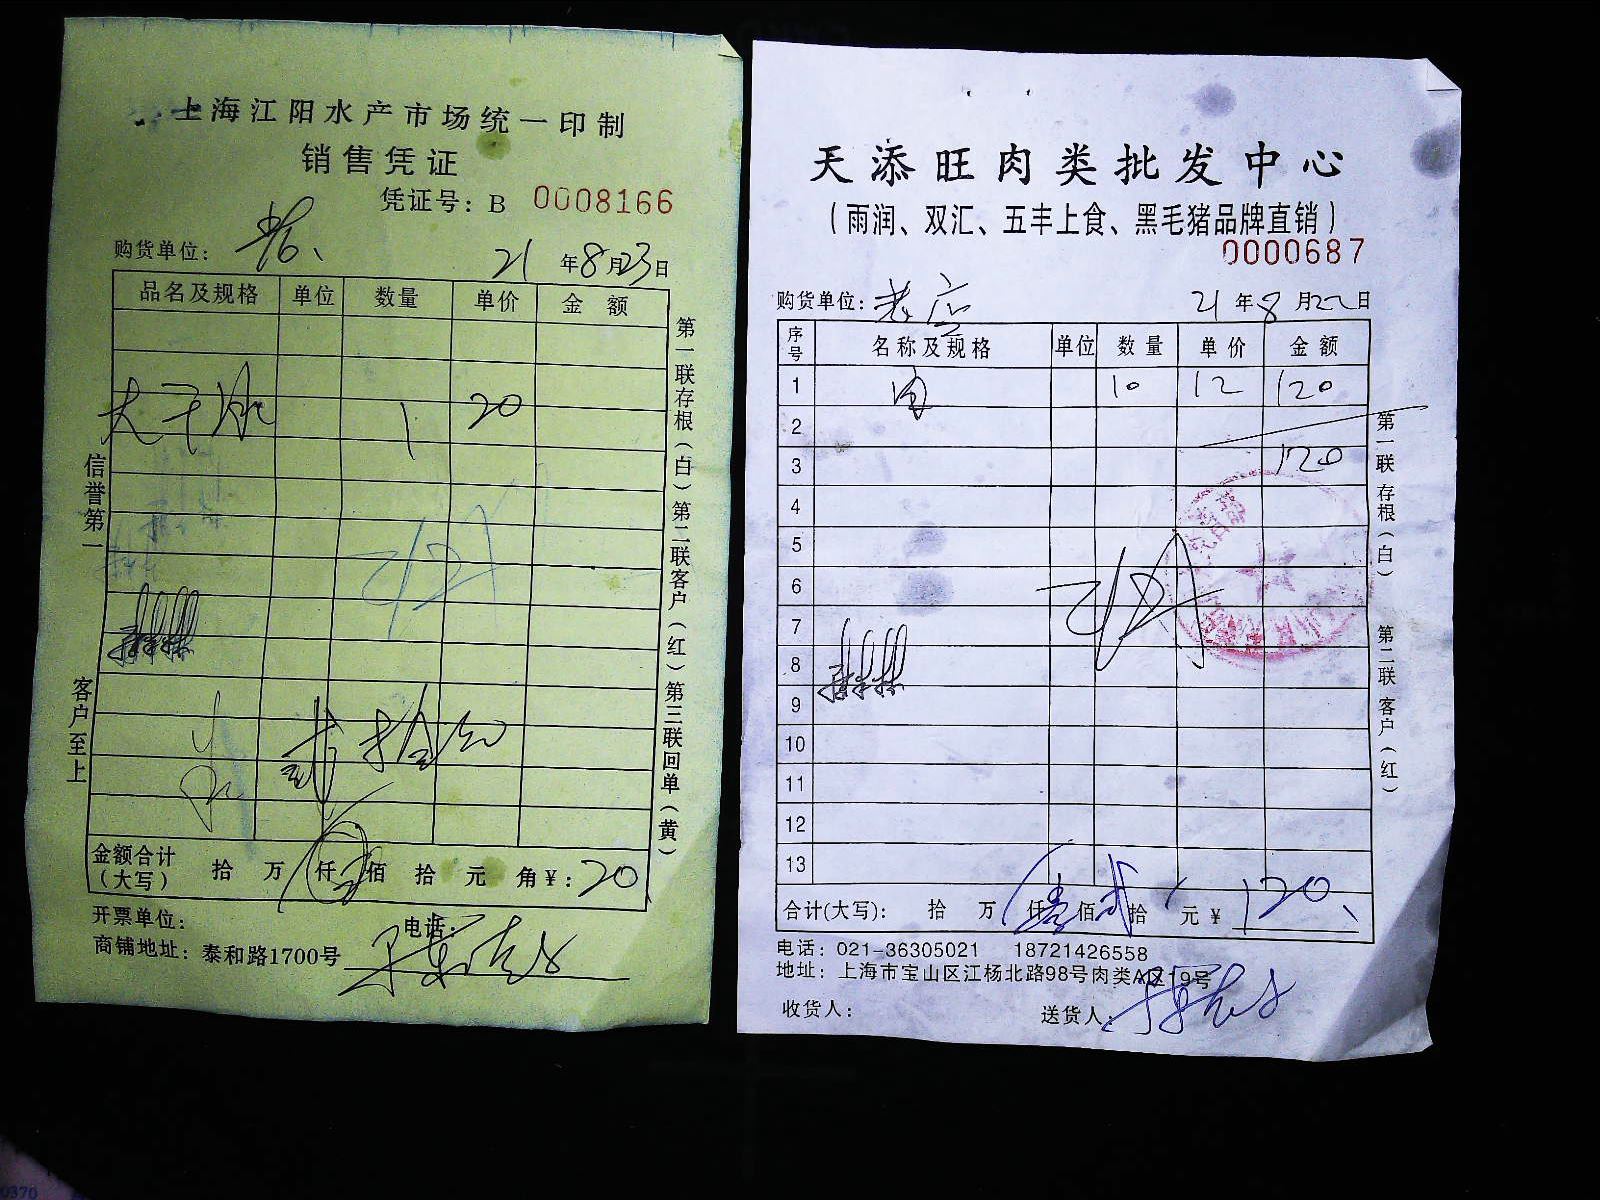 上海江阳水产市场统一印制
销售凭证
凭证号：B 0008166
购货单位：
21年8月23日
品名及规格 单位 数量 单价 金额
1 20
信誉第一
客户至上
第一联存根（白）第二联客户（红）第三联回单（黄）
贰拾元
金额合计（大写） 拾 万 仟 佰 拾 元 角 ¥：20
开票单位： 电话：
商铺地址：泰和路1700号
天添旺肉类批发中心
（雨润、双汇、五丰上食、黑毛猪品牌直销）
0000687
购货单位：老应 21年8月22日
序号 名称及规格 单位 数量 单价 金额
1 肉 10 12 120
2
3 120
4
5
6
7
8
9
10
11
12
13
第一联 存根（白） 第二联 客户（红）
合计(大写)： 拾 万 仟 壹 佰 贰 拾 元 ¥ 120
电话：021-36305021 18721426558
地址：上海市宝山区江杨北路98号肉类A区19号
收货人： 送货人：
0370